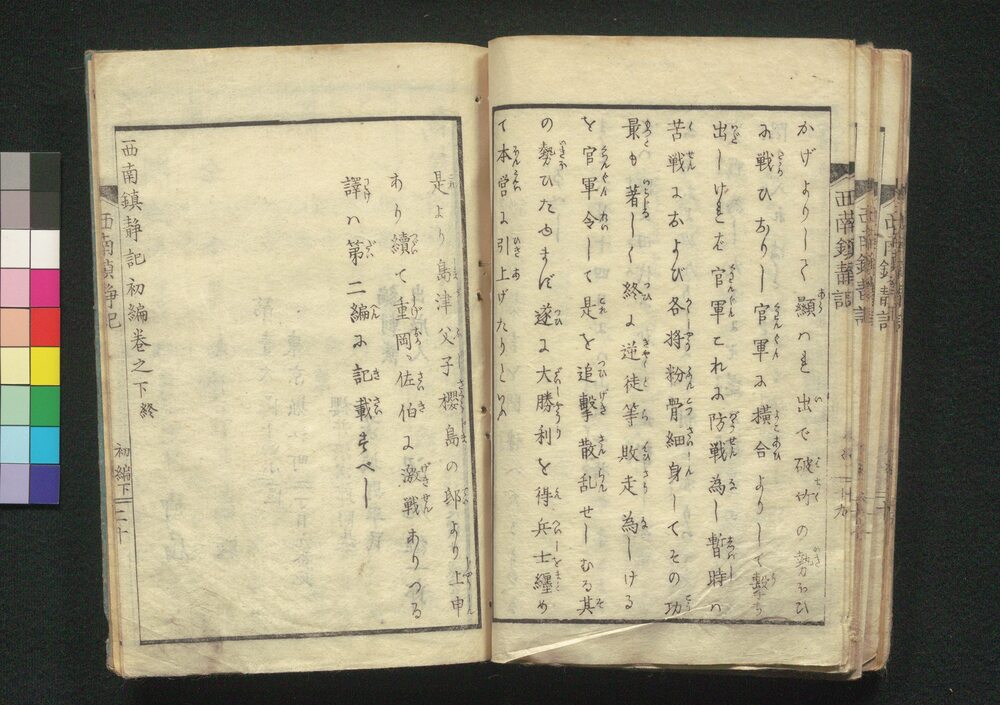 かげよりして顕はれ出で破竹の勢ひ
に戦ひなりし官軍に横合よりして撃ち
出しければ官軍これに防戦為し暫時は
苦戦におよび各将粉骨細身してその功
最も著しく終に逆徒等敗走為しける
を官軍令して是を追撃散乱せしむる其
の勢ひたゆまず遂に大勝利を得兵士纏め
て本営に引上げたりとぞ
是より島津父子櫻島の邸より上申
あり續て重岡佐伯に激戦ありつる
譯は第二編に記載すべし
西南鎮静記初編巻之下終
西南鎮静記
初編下
二十
西南鎮静記
十九
西南鎮静記
西南鎮静記